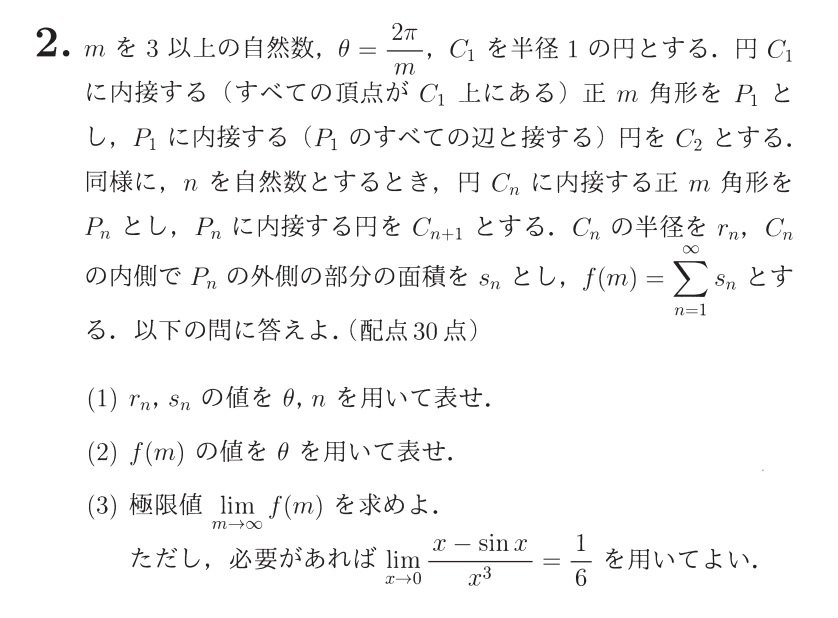 2. m を 3 以上の自然数，θ = 2π/m，C₁ を半径 1 の円とする．円 C₁
に内接する（すべての頂点が C₁ 上にある）正 m 角形を P₁ と
し，P₁ に内接する（P₁ のすべての辺と接する）円を C₂ とする．
同様に，n を自然数とするとき，円 Cₙ に内接する正 m 角形を
Pₙ とし，Pₙ に内接する円を Cₙ₊₁ とする．Cₙ の半径を rₙ，Cₙ
の内側で Pₙ の外側の部分の面積を sₙ とし，f(m) = ∑_{n=1}^{∞} sₙ とす
る．以下の問に答えよ．（配点 30 点）
(1) rₙ, sₙ の値を θ, n を用いて表せ．
(2) f(m) の値を θ を用いて表せ．
(3) 極限値 lim_{m→∞} f(m) を求めよ．
ただし，必要があれば lim_{x→0} (x − sin x)/x³ = 1/6 を用いてよい．